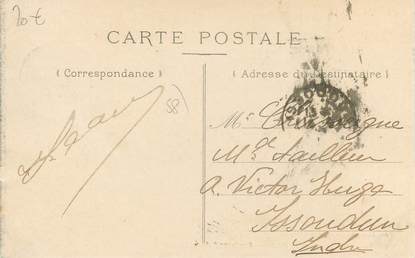 20 €
CARTE POSTALE
( Correspondance )
( Adresse du Destinataire )
58)
Mr
Md tailleur
a Victor Hugo
Issoudun
Indre